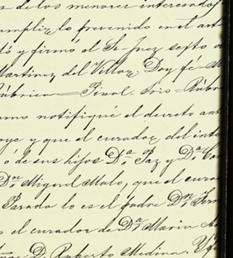 de los menores interesados
lo prevenido en el art
y firmó el Sr. Juez
Martinez del Villar, Doy fé
Rúbrica
notifiqué el decreto ant
y que el curador del inte
de sus hijos Dª Paz y Dª
Dn. Miguel Malo, que el cura
Parada lo es el padre Dn.
el curador de Dª Maria
D. Roberto Medina